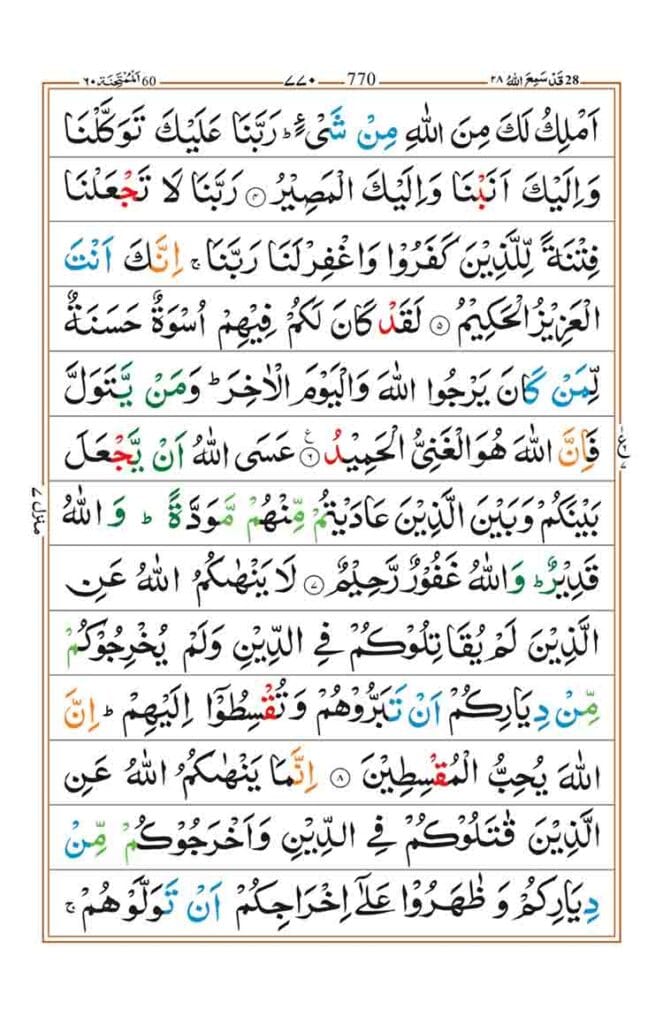 60 اَلْمُمْتَحِنَة ٦٠ ٧٧٠ 770 28 قَدْ سَمِعَ اللّٰهُ ٢٨
اَمْلِكُ لَكَ مِنَ اللّٰهِ مِنْ شَیْءٍ ؕ رَبَّنَا عَلَیْكَ تَوَكَّلْنَا
وَاِلَیْكَ اَنَبْنَا وَاِلَیْكَ الْمَصِیْرُ ۝۴ رَبَّنَا لَا تَجْعَلْنَا
فِتْنَةً لِّلَّذِیْنَ كَفَرُوْا وَاغْفِرْ لَنَا رَبَّنَا ۚ اِنَّكَ اَنْتَ
الْعَزِیْزُ الْحَكِیْمُ ۝۵ لَقَدْ كَانَ لَكُمْ فِیْهِمْ اُسْوَةٌ حَسَنَةٌ
لِّمَنْ كَانَ یَرْجُوا اللّٰهَ وَالْیَوْمَ الْاٰخِرَ ؕ وَمَنْ یَّتَوَلَّ
فَاِنَّ اللّٰهَ هُوَ الْغَنِیُّ الْحَمِیْدُ ۝۶ عَسَی اللّٰهُ اَنْ یَّجْعَلَ
بَیْنَكُمْ وَبَیْنَ الَّذِیْنَ عَادَیْتُمْ مِّنْهُمْ مَّوَدَّةً ؕ وَاللّٰهُ
قَدِیْرٌ ؕ وَاللّٰهُ غَفُوْرٌ رَّحِیْمٌ ۝۷ لَا یَنْهٰىكُمُ اللّٰهُ عَنِ
الَّذِیْنَ لَمْ یُقَاتِلُوْكُمْ فِی الدِّیْنِ وَلَمْ یُخْرِجُوْكُمْ
مِّنْ دِیَارِكُمْ اَنْ تَبَرُّوْهُمْ وَتُقْسِطُوْۤا اِلَیْهِمْ ؕ اِنَّ
اللّٰهَ یُحِبُّ الْمُقْسِطِیْنَ ۝۸ اِنَّمَا یَنْهٰىكُمُ اللّٰهُ عَنِ
الَّذِیْنَ قٰتَلُوْكُمْ فِی الدِّیْنِ وَاَخْرَجُوْكُمْ مِّنْ
دِیَارِكُمْ وَظٰهَرُوْا عَلٰۤی اِخْرَاجِكُمْ اَنْ تَوَلَّوْهُمْ ۚ
منزل ٧